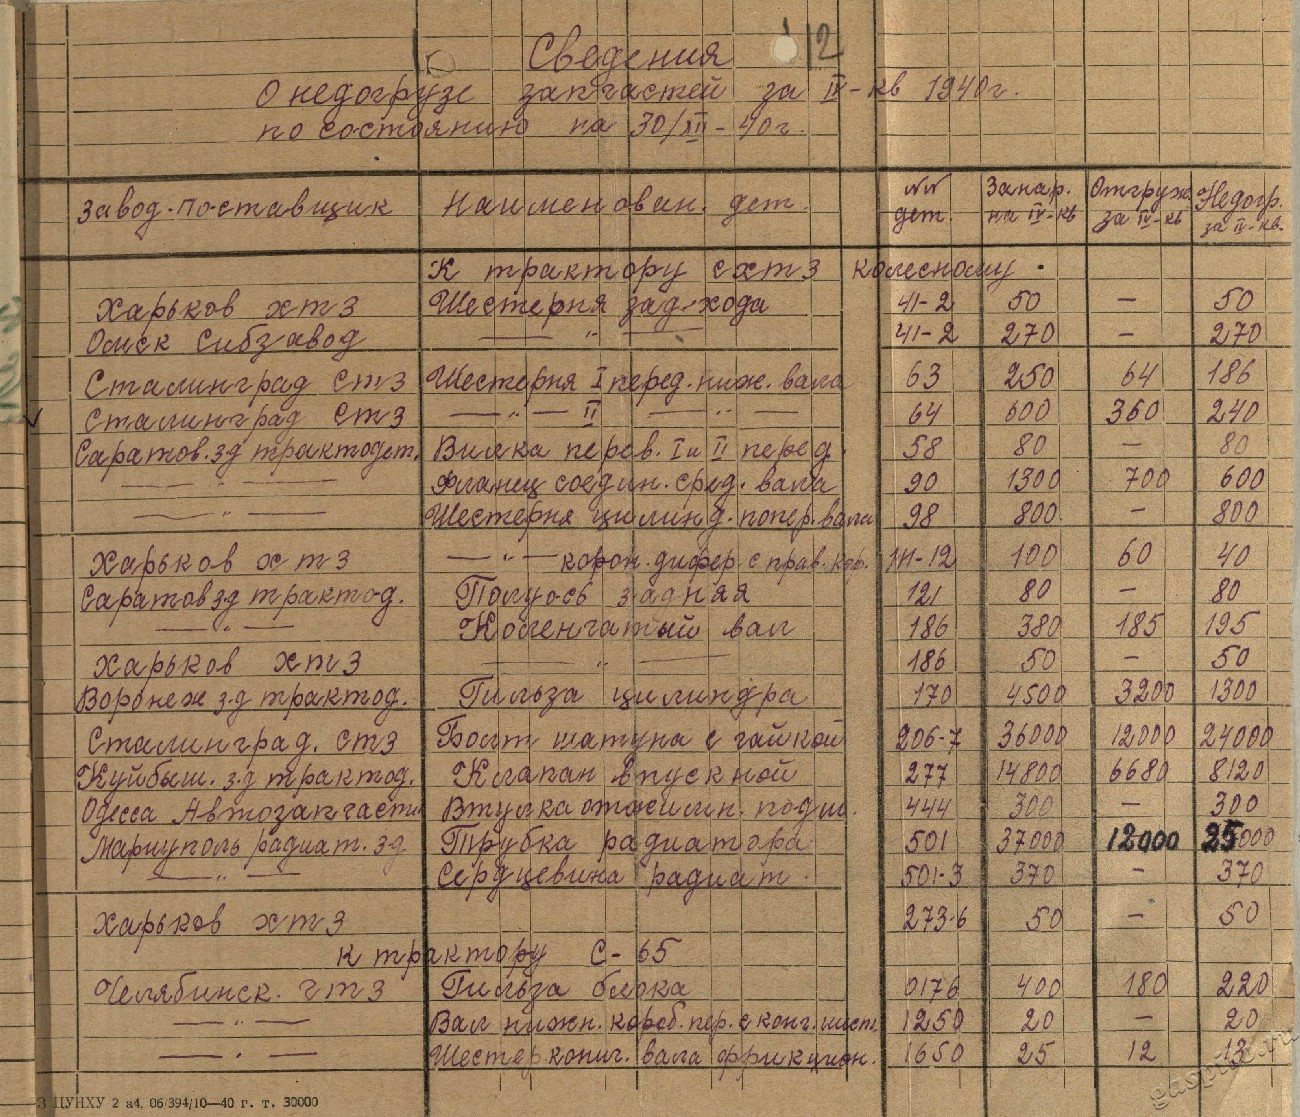 12
Сведения
О недогрузе запчастей за IV-кв 1940г.
по состоянию на 30/XII-40г.
Завод-поставщик Наименован. дет. №№ дет. Занар. на IV-кв Отгруж. за IV-кв Недогр. за IV-кв.
К трактору СХТЗ колесному.
Харьков ХТЗ Шестерня зад-хода 41-2 50 — 50
Омск Сибзавод — " — 41-2 270 — 270
Сталинград СТЗ Шестерня I перед. ниж. вала 63 250 64 186
Сталинград СТЗ — " — II — " — 64 600 360 240
Саратов. зд трактодет. Вилка перев. I и II перед. 58 80 — 80
— " — Фланец соедин. сред. вала 90 1300 700 600
— " — Шестерня цилинд. попер. вала 98 800 — 800
Харьков ХТЗ — " — корон. дифер. с прав. кор. 111-12 100 60 40
Саратов зд трактод. Полуось задняя 121 80 — 80
— " — Коленчатый вал 186 380 185 195
Харьков ХТЗ — " — 186 50 — 50
Воронеж зд трактод. Гильза цилиндра 170 4500 3200 1300
Сталинград. СТЗ Болт шатуна с гайкой 206-7 36000 12000 24000
Куйбыш. зд трактод. Клапан впускной 277 14800 6680 8120
Одесса Автозапчасти Втулка подш. 444 300 — 300
Мариуполь радиат. зд Трубка радиатора 501 37000 12000 25000
— " — Сердцевина радиат. 501-3 370 — 370
Харьков ХТЗ 273-6 50 — 50
К трактору С-65
Челябинск. ЧТЗ Гильза блока 0176 400 180 220
— " — Вал нижн. короб. пер. с кон. шест. 1250 20 — 20
— " — Шестер конич. вала фрикцион. 1650 25 12 13
З ЦУНХУ 2 а4. 06/394/10—40 г. т. 30000
gaspiko.ru